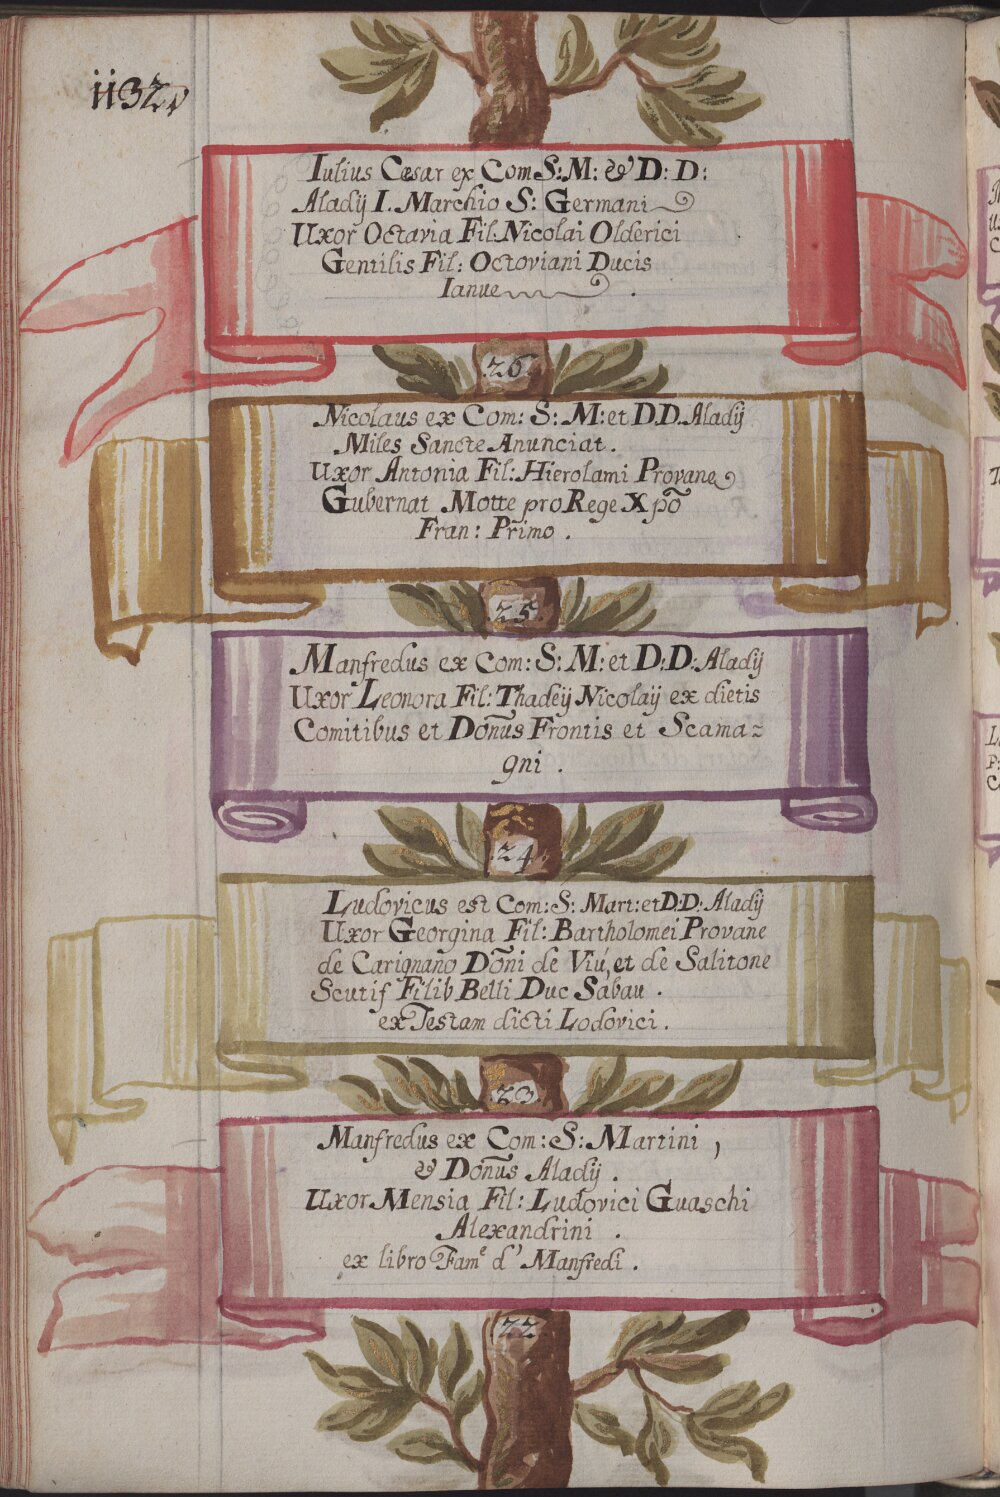 1132
Iulius Cæsar ex Com S: M: & D: D:
Aladij I. Marchio S: Germani
Uxor Octavia Fil: Nicolai Olderici
Gentilis Fil: Octoviani Ducis
Ianue
26
Nicolaus ex Com: S: M: et D.D. Aladij
Miles Sancte Anunciat.
Uxor Antonia Fil: Hierolami Provane
Gubernat Motte pro Rege Xpõ
Fran: Primo.
25
Manfredus ex Com: S: M: et D: D: Aladij
Uxor Leonora Fil: Thadeÿ Nicolaÿ ex dictis
Comitibus et Doñus Frontis et Scama=
gni.
24
Ludovicus est Com: S: Mart: et D.D: Aladij
Uxor Georgina Fil: Bartholomei Provane
de Carignaño Doñi de Viú, et de Salitone
Scutif Filib Belli Duc Sabau.
ex Testam dicti Lodovici.
23
Manfredus ex Com: S: Martini,
& Doñus Aladij.
Uxor Mensia Fil: Ludovici Guaschi
Alexandrini.
ex libro Fam.e d' Manfredi.
22